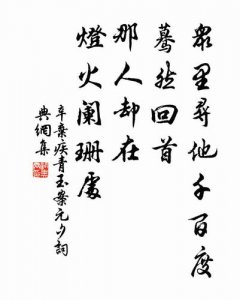 眾里尋他千百度
驀然回首
那人却在
燈火闌珊處
辛棄疾青玉案元夕詞
典綱集